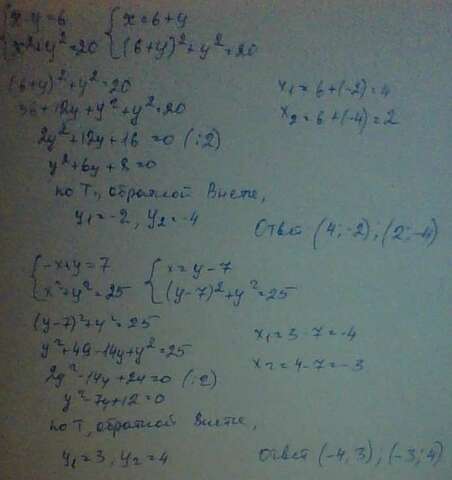 { x-y=6 { x=6+y
x²+y²=20 (6+y)²+y²=20
(6+y)²+y²=20
36+12y+y²+y²=20
2y²+12y+16=0 (:2)
y²+6y+8=0
по т, обратной Виете,
y₁=-2, y₂=-4
x₁=6+(-2)=4
x₂=6+(-4)=2
Ответ (4;-2);(2;-4)
{ -x+y=7 { x=y-7
x²+y²=25 (y-7)²+y²=25
(y-7)²+y²=25
y²+49-14y+y²=25
2y²-14y+24=0 (:2)
y²-7y+12=0
по т, обратной Виете,
y₁=3, y₂=4
x₁=3-7=-4
x₂=4-7=-3
Ответ (-4,3);(-3;4)